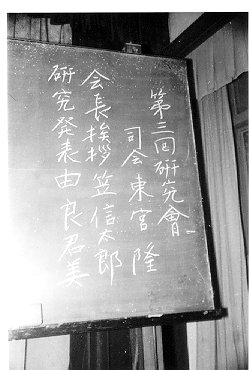 第三回研究會
司会東宮隆
会長挨拶笠信太郎
研究発表由良君美